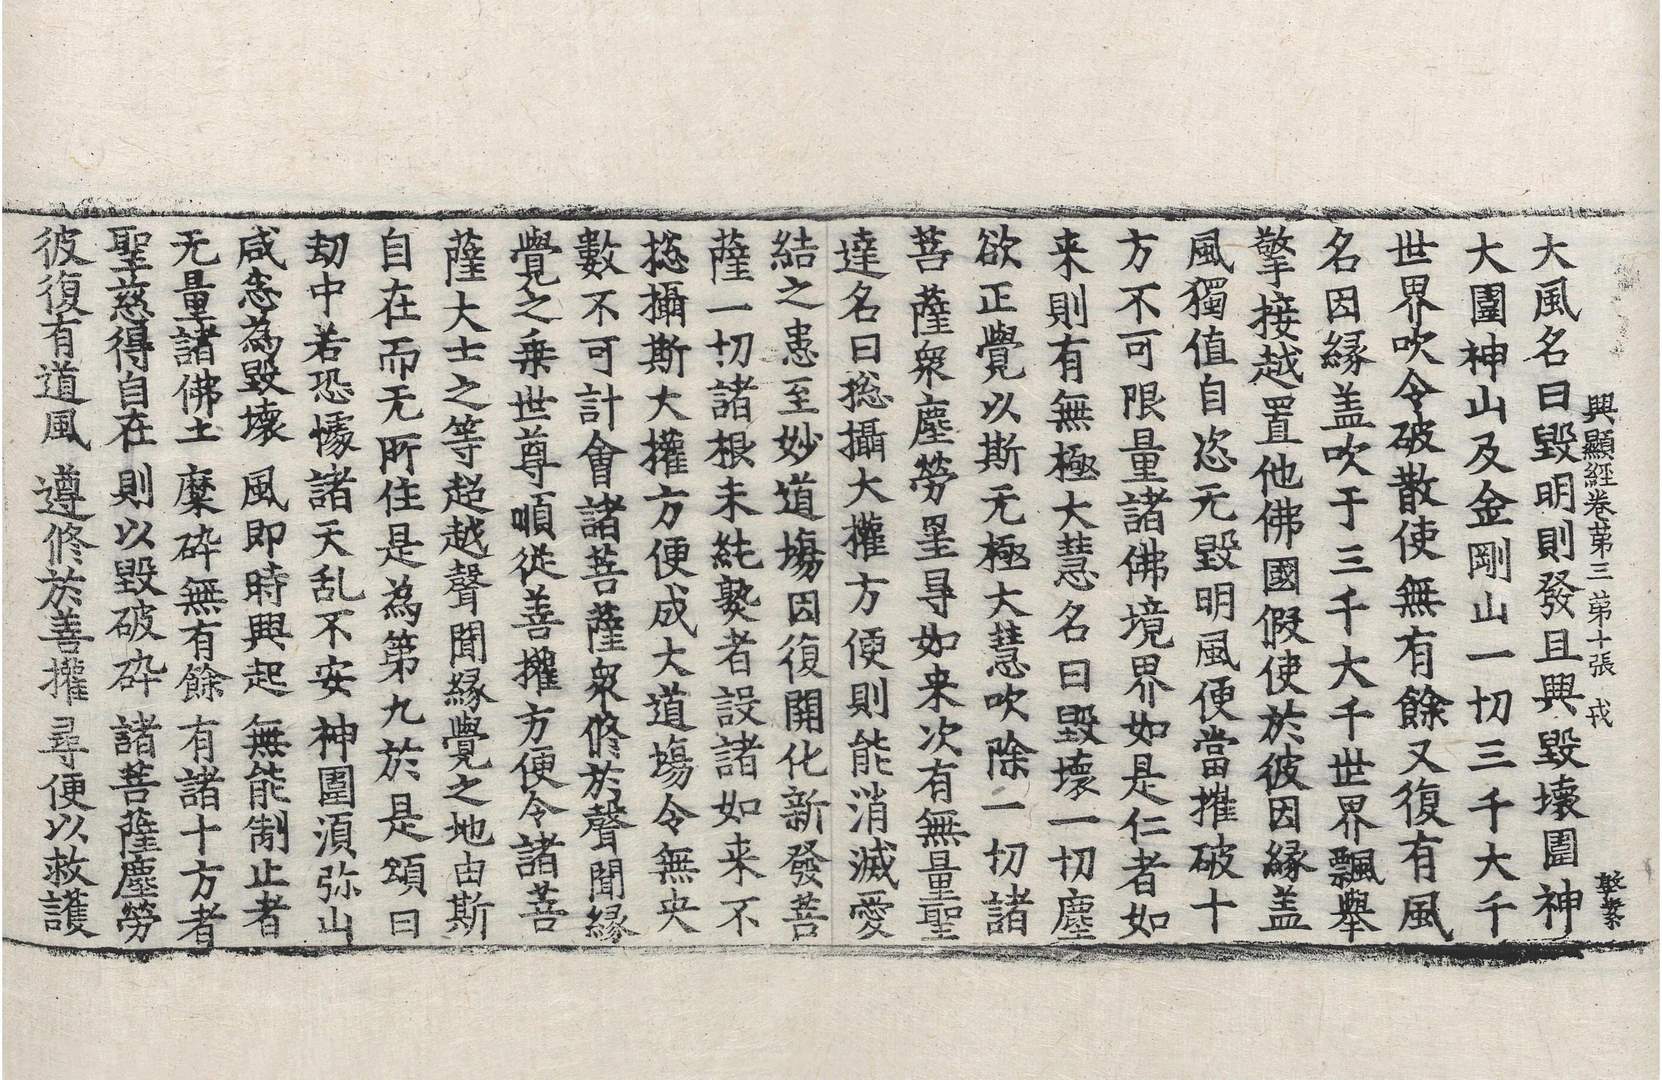 興顯經卷苐三 苐十張 戎
大風名曰毀明則發且興毀壞圍神
大圍神山及金剛山一切三千大千
世界吹令破散使無有餘又復有風
名因緣盖吹于三千大千世界飄舉
擎接越置他佛國假使於彼因緣盖
風獨值自恣无毀明風便當摧破十
方不可限量諸佛境界如是仁者如
来則有無極大慧名曰毀壞一切塵
欲正覺以斯无極大慧吹除一切諸
菩薩衆塵勞罣㝵如来次有無量聖
達名曰揔攝大權方便則能消滅愛
結之恚至妙道場因復開化新發菩
薩一切諸根未純熟者設諸如来不
揔攝斯大權方便成大道場令無央
數不可計會諸菩薩衆修於聲聞緣
覺之乗世尊順從善權方便令諸菩
薩大士之等超越聲聞緣覺之地由斯
自在而无所住是為第九於是頌曰
劫中若恐懅 諸天乱不安 神圍湏弥山
咸悉為毀壞 風即時興起 無能制止者
无量諸佛土 糜碎無有餘 有諸十方者
聖慈得自在 則以毀破碎 諸菩薩塵勞
彼復有道風 遵修於善權 尋便以救護